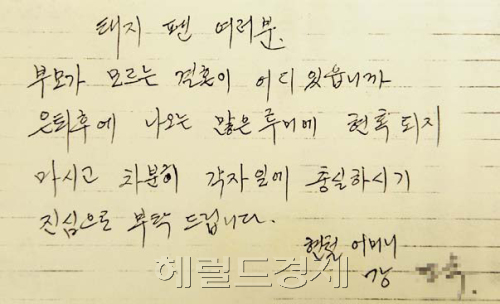 태지 팬 여러분.
부모가 모르는 결혼이 어디 있읍니까
은퇴후에 나오는 많은 루머에 현혹 되지
마시고 차분히 각자 일에 충실하시기
진심으로 부탁 드립니다.
현철 어머니
강
헤럴드경제